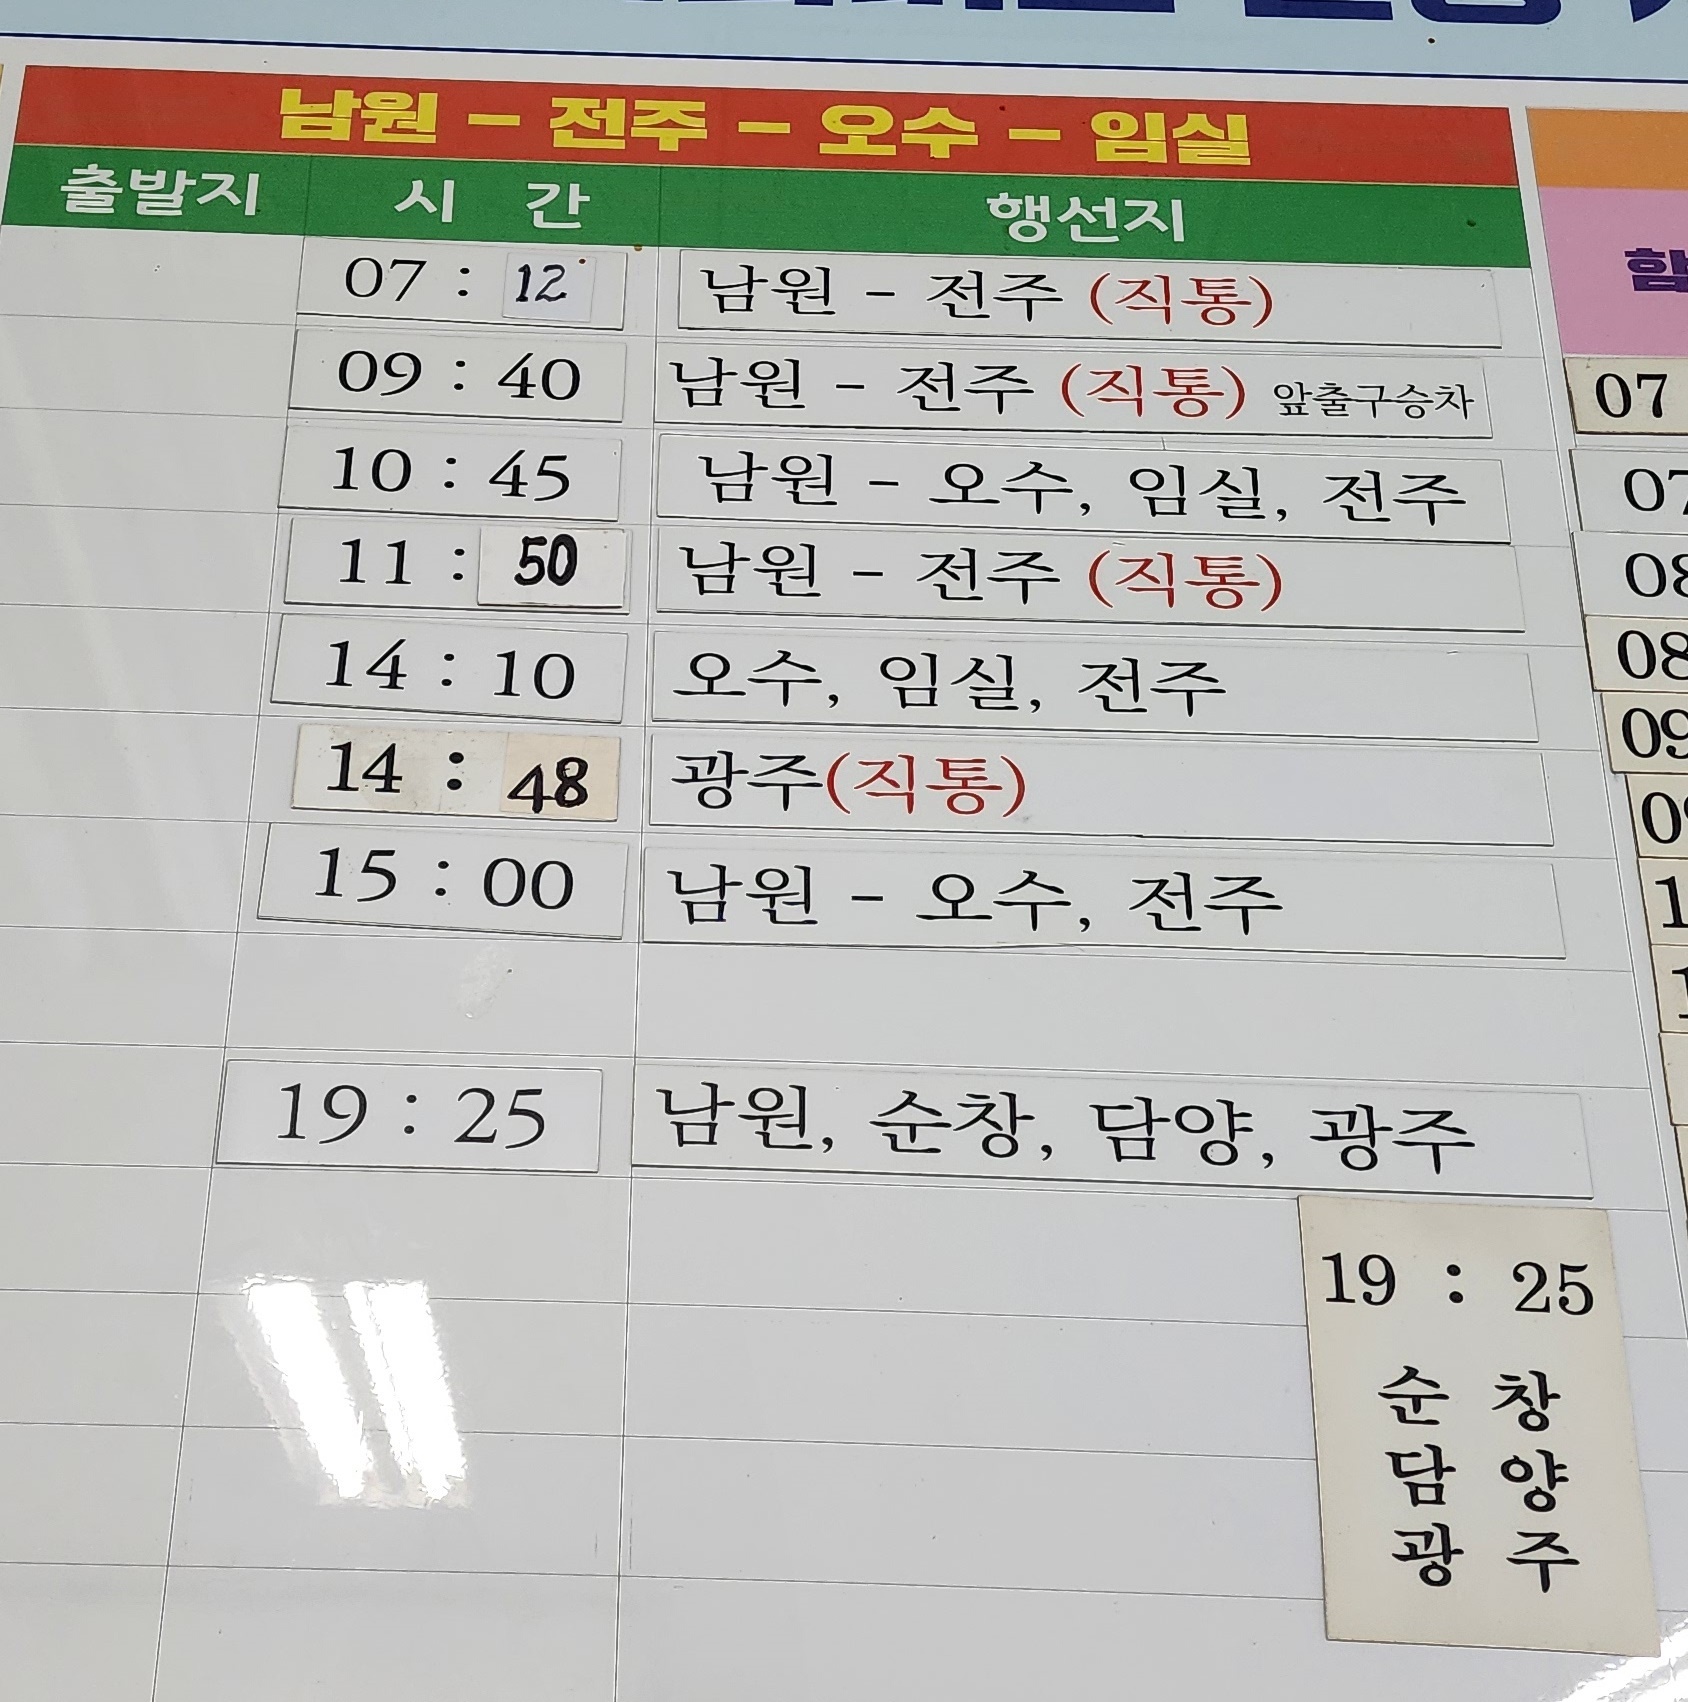 남원 - 전주 - 오수 - 임실
출발지 시 간 행선지
07 : 12 남원 - 전주 (직통)
09 : 40 남원 - 전주 (직통) 앞출구승차
10 : 45 남원 - 오수, 임실, 전주
11 : 50 남원 - 전주 (직통)
14 : 10 오수, 임실, 전주
14 : 48 광주(직통)
15 : 00 남원 - 오수, 전주
19 : 25 남원, 순창, 담양, 광주
19 : 25
순 창
담 양
광 주
함
07
07
08
08
09